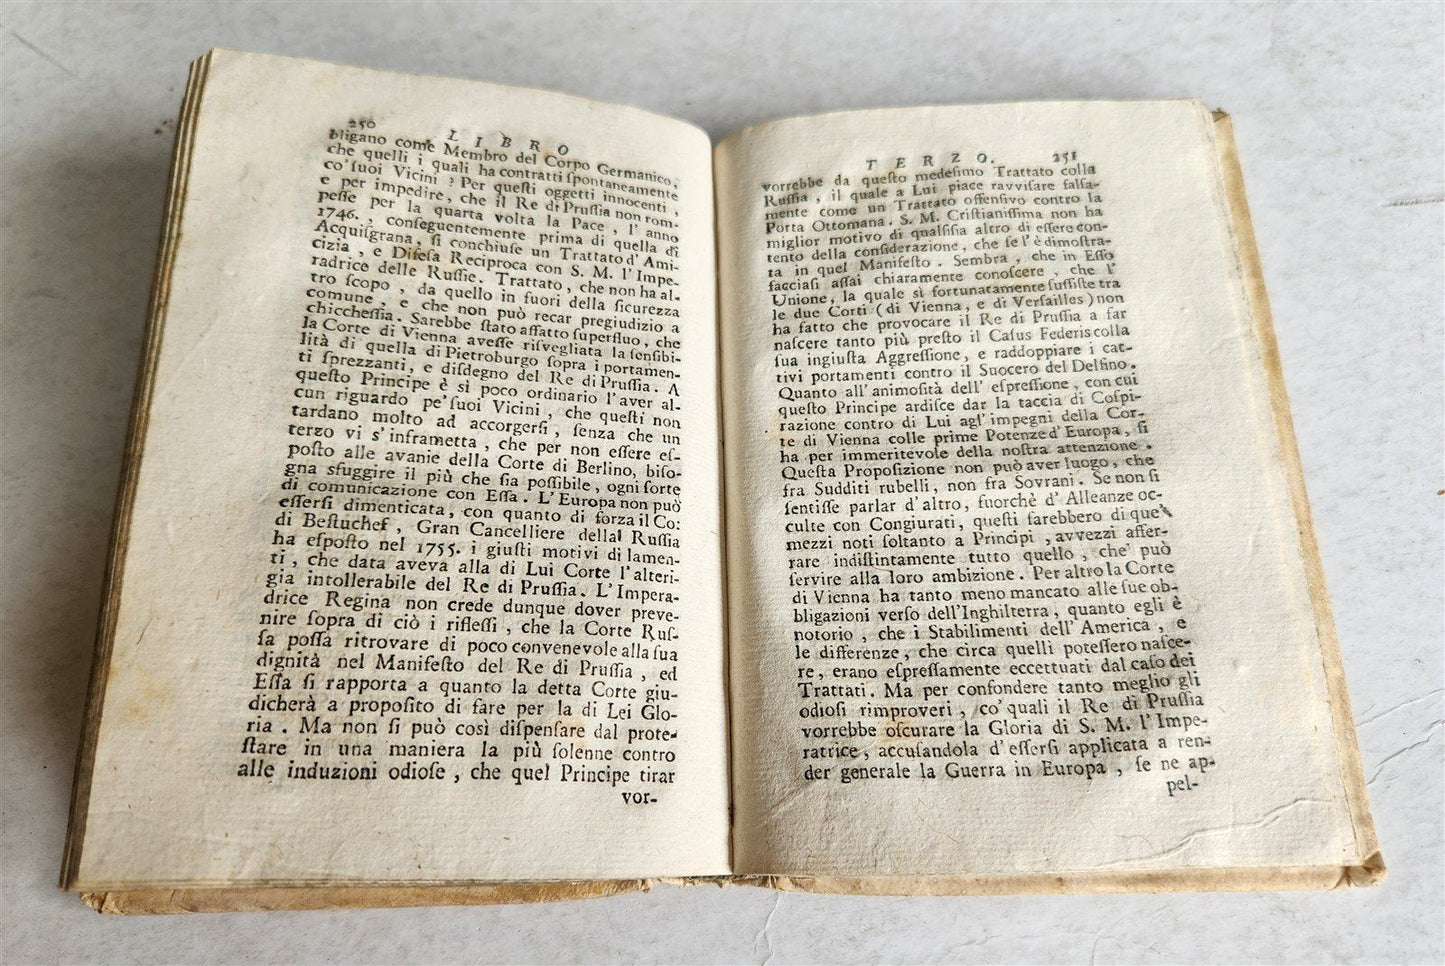 250 LIBRO
bligano come Membro del Corpo Germanico,
che quelli i quali ha contratti ſpontaneamente
co' ſuoi Vicini? Per queſti oggetti innocenti,
e per impedire, che il Re di Pruſſia non rom-
peſſe per la quarta volta la Pace, l' anno
1746., conſeguentemente prima di quella di
Acquiſgrana, ſi conchiuſe un Trattato d' Ami-
cizia, e Difeſa Reciproca con S. M. l' Impe-
radrice delle Ruſſie. Trattato, che non ha al-
tro ſcopo, da quello in fuori della ſicurezza
comune, e che non può recar pregiudizio a
chiccheſſia. Sarebbe ſtato affatto ſuperfluo, che
la Corte di Vienna aveſſe riſvegliata la ſenſibi-
lità di quella di Pietroburgo ſopra i portamen-
ti ſprezzanti, e diſdegno del Re di Pruſſia. A
queſto Principe è sì poco ordinario l' aver al-
cun riguardo pe' ſuoi Vicini, che queſti non
tardano molto ad accorgerſi, ſenza che un
terzo vi s' inframetta, che per non eſſere eſ-
poſto alle avanie della Corte di Berlino, biſo-
gna sfuggire il più che ſia poſſibile, ogni ſorte
di comunicazione con Eſſa. L' Europa non può
eſſerſi dimenticata, con quanto di forza il Co:
di Beſtuchef, Gran Cancelliere della Ruſſia
ha eſpoſto nel 1755. i giuſti motivi di lamen-
ti, che data aveva alla di Lui Corte l' alteri-
gia intollerabile del Re di Pruſſia. L' Impera-
drice Regina non crede dunque dover preve-
nire ſopra di ciò i rifleſſi, che la Corte Ruſ-
ſa poſſa ritrovare di poco convenevole alla ſua
dignità nel Manifeſto del Re di Pruſſia, ed
Eſſa ſi rapporta a quanto la detta Corte giu-
dicherà a propoſito di fare per la di Lei Glo-
ria. Ma non ſi può così diſpenſare dal prote-
ſtare in una maniera la più ſolenne contro
alle induzioni odioſe, che quel Principe tirar
vor-
TERZO. 251
vorrebbe da queſto medeſimo Trattato colla
Ruſſia, il quale a Lui piace ravviſare falſa-
mente come un Trattato offenſivo contro la
Porta Ottomana. S. M. Criſtianiſſima non ha
miglior motivo di qualſiſia altro di eſſere con-
tento della conſiderazione, che ſe l' è dimoſtra-
ta in quel Manifeſto. Sembra, che in Eſſo
facciaſi aſſai chiaramente conoſcere, che l'
Unione, la quale sì fortunatamente ſuſſiſte tra
le due Corti (di Vienna, e di Verſailles) non
ha fatto che provocare il Re di Pruſſia a far
naſcere tanto più preſto il Caſus Federis colla
ſua ingiuſta Aggreſſione, e raddoppiare i cat-
tivi portamenti contro il Suocero del Delfino.
Quanto all' animoſità dell' eſpreſſione, con cui
queſto Principe ardiſce dar la taccia di Coſpi-
razione contro di Lui agl' impegni della Cor-
te di Vienna colle prime Potenze d' Europa, ſi
ha per immeritevole della noſtra attenzione.
Queſta Propoſizione non può aver luogo, che
fra Sudditi rubelli, non fra Sovrani. Se non ſi
ſentiſſe parlar d' altro, fuorchè d' Alleanze oc-
culte con Congiurati, queſti ſarebbero di que'
mezzi noti ſoltanto a Principi, avvezzi affer-
rare indiſtintamente tutto quello, che può
ſervire alla loro ambizione. Per altro la Corte
di Vienna ha tanto meno mancato alle ſue ob-
bligazioni verſo dell' Inghilterra, quanto egli è
notorio, che i Stabilimenti dell' America, e
le differenze, che circa quelli poteſſero naſce-
re, erano eſpreſſamente eccettuati dal caſo dei
Trattati. Ma per confondere tanto meglio gli
odioſi rimproveri, co' quali il Re di Pruſſia
vorrebbe oſcurare la Gloria di S. M. l' Impe-
ratrice, accuſandola d' eſſerſi applicata a ren-
der generale la Guerra in Europa, ſe ne ap-
pel-